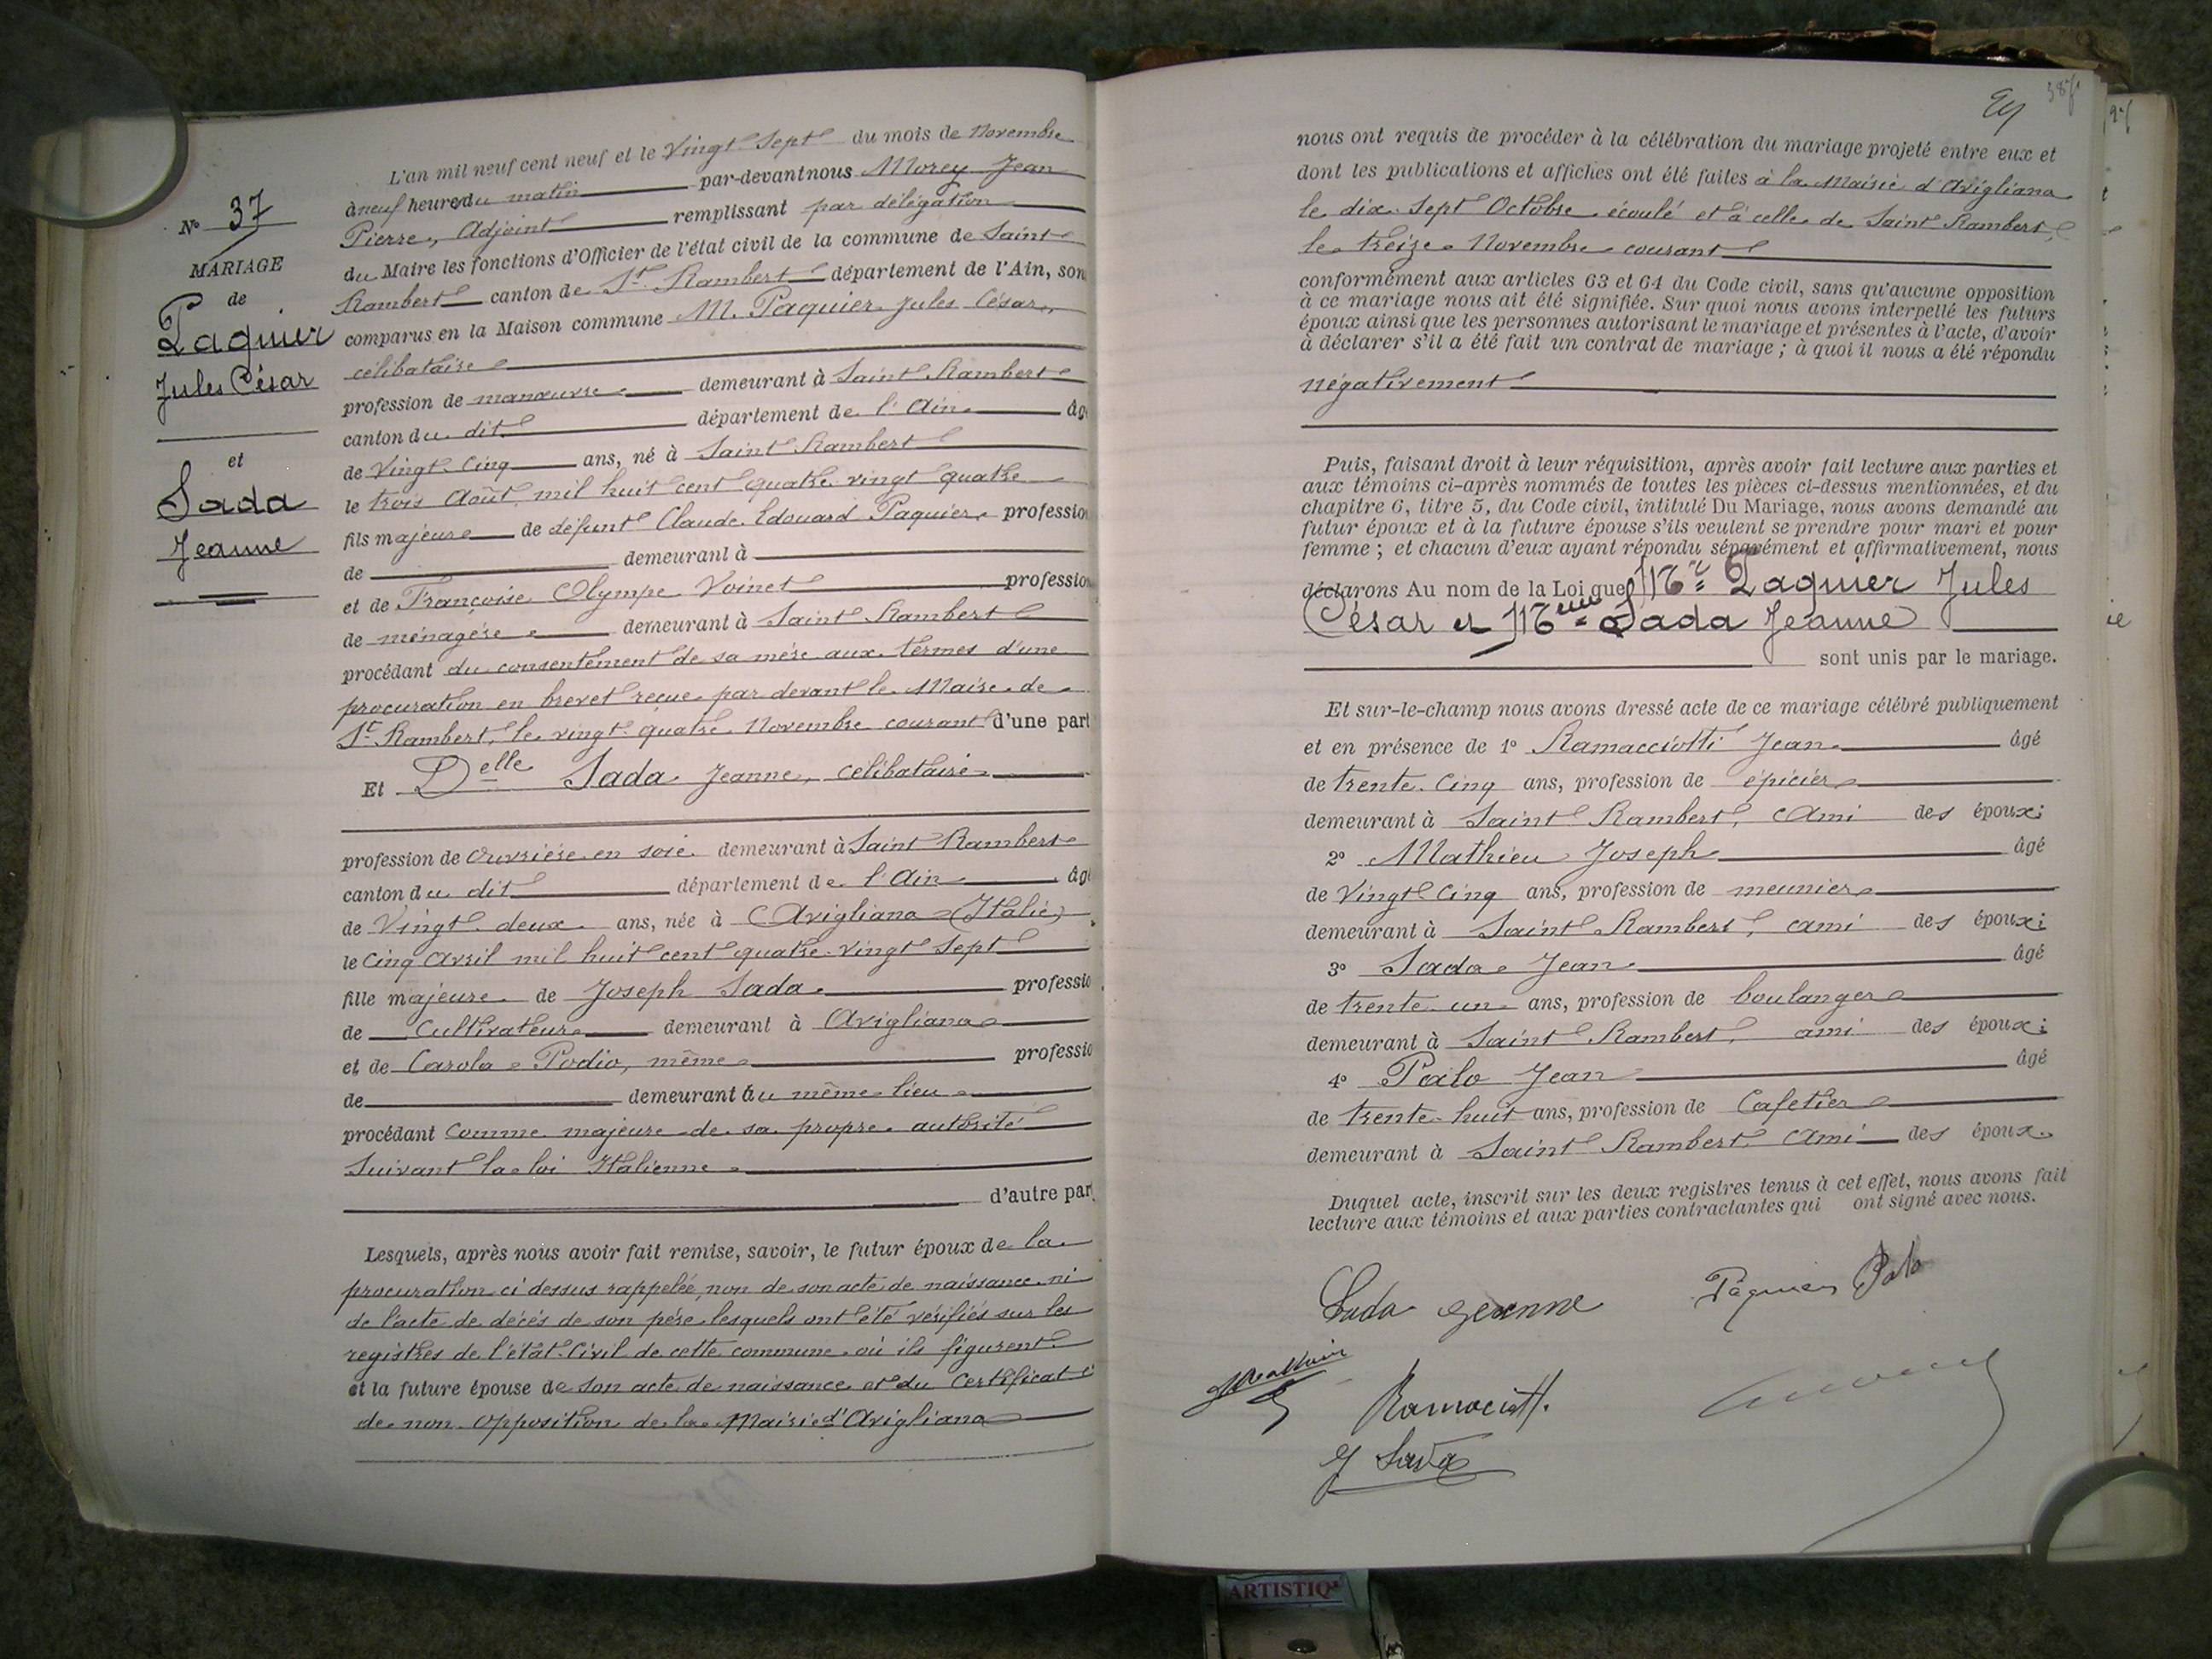 L'an mil neuf cent neuf et le Vingt Sept du mois de Novembre
à neuf heures du matin par-devant nous Morey Jean
Pierre, Adjoint remplissant par délégation
du Maire les fonctions d'Officier de l'état civil de la commune de Saint
Rambert canton de St Rambert département de l'Ain, son
comparus en la Maison commune M. Paquier Jules César,
célibataire
profession de manœuvre demeurant à Saint Rambert
canton du dit département de l'Ain âg
de Vingt Cinq ans, né à Saint Rambert
le trois Août mil huit cent quatre vingt quatre
fils majeur de défunt Claude Edouard Paquier profession
de demeurant à
et de Françoise Olympe Voinet profession
de ménagère demeurant à Saint Rambert
procédant du consentement de sa mère aux termes d'une
procuration en brevet reçue par devant le Maire de
St Rambert, le vingt quatre Novembre courant d'une part
Et Delle Sada Jeanne, célibataire
profession de Ouvrière en soie demeurant à Saint Rambert
canton du dit département de l'Ain âg
de Vingt deux ans, née à Avigliana (Italie)
le Cinq Avril mil huit cent quatre vingt Sept
fille majeure de Joseph Sada professio
de Cultivateur demeurant à Avigliana
et de Carola Podio, même professio
de demeurant au même lieu
procédant Comme majeure de sa propre autorité
Suivant la loi Italienne
d'autre part
Lesquels, après nous avoir fait remise, savoir, le futur époux de la
procuration ci dessus rappelée, non de son acte de naissance ni
de l'acte de décès de son père lesquels ont été vérifiés sur les
registres de l'état-Civil de cette commune où ils figurent
et la future épouse de son acte de naissance et du Certificat
de non opposition de la Mairie d'Avigliana
No 37
MARIAGE
de
Paquier
Jules César
et
Sada
Jeanne
nous ont requis de procéder à la célébration du mariage projeté entre eux et
dont les publications et affiches ont été faites à la Mairie d'Avigliana
le dix Sept Octobre écoulé et à celle de Saint Rambert
le treize Novembre courant
conformément aux articles 63 et 64 du Code civil, sans qu'aucune opposition
à ce mariage nous ait été signifiée. Sur quoi nous avons interpellé les futurs
époux ainsi que les personnes autorisant le mariage et présentes à l'acte, d'avoir
à déclarer s'il a été fait un contrat de mariage ; à quoi il nous a été répondu
négativement
Puis, faisant droit à leur réquisition, après avoir fait lecture aux parties et
aux témoins ci-après nommés de toutes les pièces ci-dessus mentionnées, et du
chapitre 6, titre 5, du Code civil, intitulé Du Mariage, nous avons demandé au
futur époux et à la future épouse s'ils veulent se prendre pour mari et pour
femme ; et chacun d'eux ayant répondu séparément et affirmativement, nous
déclarons Au nom de la Loi que Mr Paquier Jules
César et Mme Sada Jeanne
sont unis par le mariage.
Et sur-le-champ nous avons dressé acte de ce mariage célébré publiquement
et en présence de 1º Ramacciotti Jean âgé
de trente Cinq ans, profession de épicier
demeurant à Saint Rambert, Ami des époux;
2º Mathieu Joseph âgé
de Vingt Cinq ans, profession de meunier
demeurant à Saint Rambert, ami des époux;
3º Sada Jean âgé
de trente un ans, profession de boulanger
demeurant à Saint Rambert, ami des époux;
4º Palo Jean âgé
de trente-huit ans, profession de Cafetier
demeurant à Saint Rambert Ami des époux.
Duquel acte, inscrit sur les deux registres tenus à cet effet, nous avons fait
lecture aux témoins et aux parties contractantes qui ont signé avec nous.
Sada Jeanne Paquier Palo
Ramaciott.
J Sada
ARTISTIQ